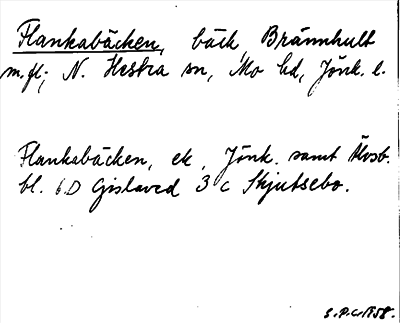 Flankabäcken, bäck, Brännhult
m.fl., N. Hestra sn, Mo hd, Jönk. l.
Flankabäcken, ek, Jönk. samt Älvsb.
bl. 6D Gislaved 3 c Skjutsebo.
S.P.C. 1958.